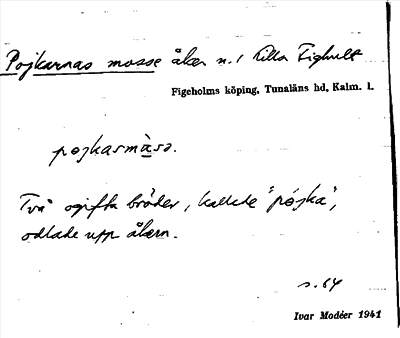 Pojkarnas mosse åker n. / Lilla Fighult
Figeholms köping, Tunaläns hd, Kalm. l.
pojkasmåsa.
Två ogifta bröder, kallade "pojka",
odlade upp åkern.
s. 64
Ivar Modéer 1941